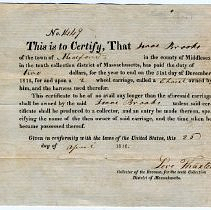 No. 1149
This is to Certify, That Isaac Brooks
of the town of Medford in the county of Middlesex
in the tenth collection district of Massachusetts, has paid the duty of
dollars, for the year to end on the 31st day of December
1816, for and upon a wheel carriage, called a Chaise owned by
him, and the harness used therefor.
This certificate to be of no avail any longer than the aforesaid carriage
shall be owned by the said Isaac Brooks unless said certificate
shall be produced to the collector, and an entry be made thereon, specifying
the name of the then owner of said carriage, and the time when he
became possessed thereof.
Given in conformity with the laws of the United States, this 25
day of April 1816.
Collector of the Revenue, for the tenth Collection
District of Massachusetts.